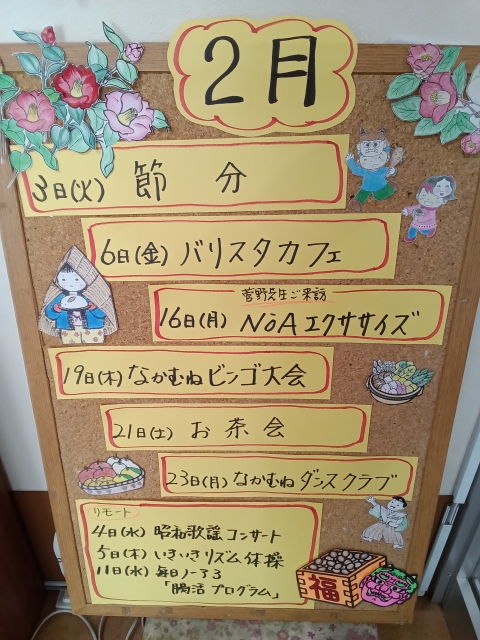 2月
3日(火) 節分
6日(金) バリスタカフェ
菅野先生ご来訪
16日(月) NOAエクササイズ
19日(木) なかむねビンゴ大会
21日(土) お茶会
23日(月) なかむねダンスクラブ
リモート
4日(水) 昭和歌謡コンサート
5日(木) いきいきリズム体操
11日(水) 毎日ノーア3
「腸活プログラム」
福